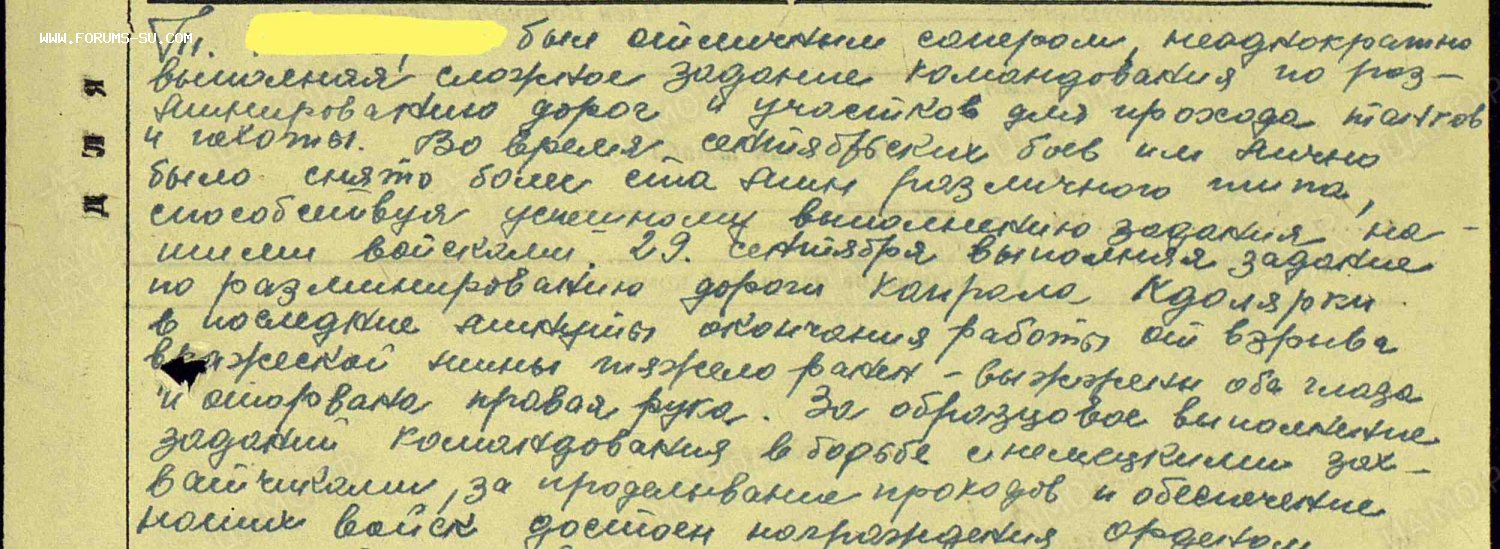 WWW.FORUMS-SU.COM
Для
Тт. был отличным сапером, неоднократно
выполняя сложное задание командования по раз-
минированию дорог и участков для прохода танков
и пехоты. Во время сентябрьских боев им лично
было снято более ста мин различного типа,
способствуя успешному выполнению задания, на-
шими войсками. 29. сентября выполняя задание
по разминированию дороги Капрала Кдолярки
в последние минуты окончания работы от взрыва
вражеской мины тяжело ранен - выжжены оба глаза
и оторвана правая рука. За образцовое выполнение
заданий командования в борьбе с немецкими зах-
ватчиками, за проделывание проходов и обеспечение
наших войск достоен награждения орденом